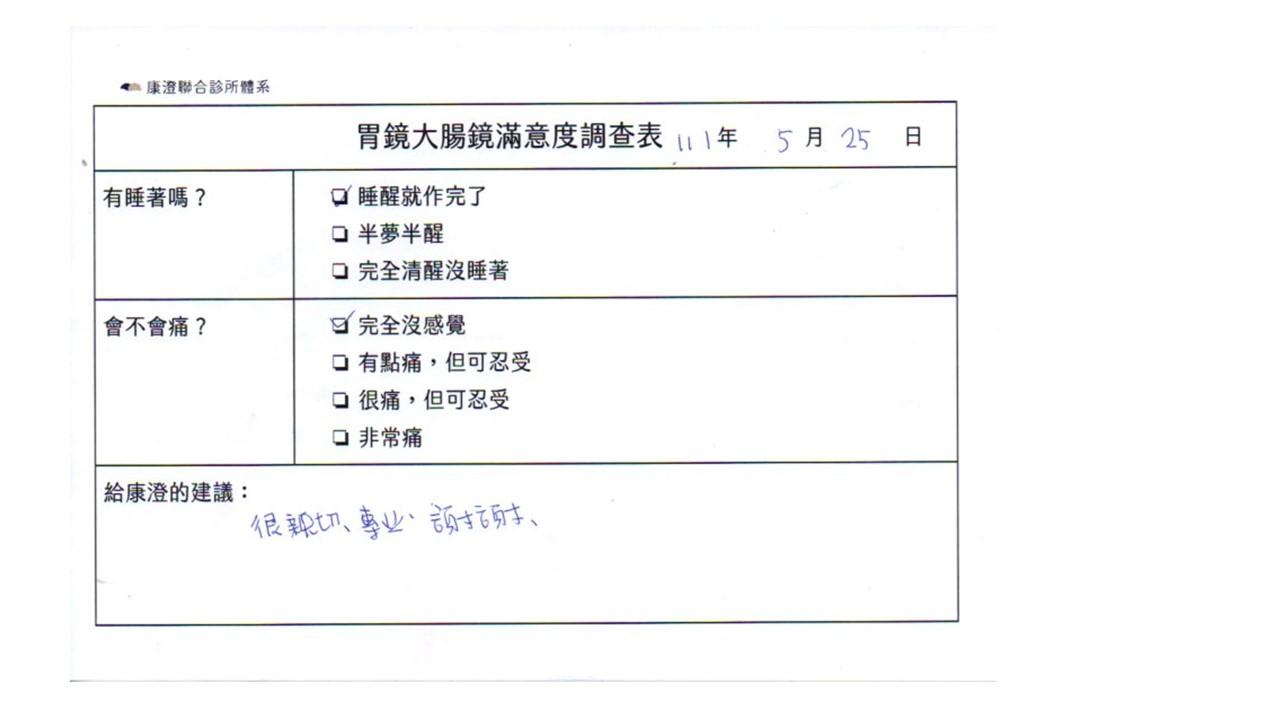 康澄聯合診所體系
胃鏡大腸鏡滿意度調查表 111年 5月25日
有睡著嗎？
☑ 睡醒就作完了
❑ 半夢半醒
❑ 完全清醒沒睡著
會不會痛？
☑ 完全沒感覺
❑ 有點痛，但可忍受
❑ 很痛，但可忍受
❑ 非常痛
給康澄的建議：
很親切、專业、謝謝、